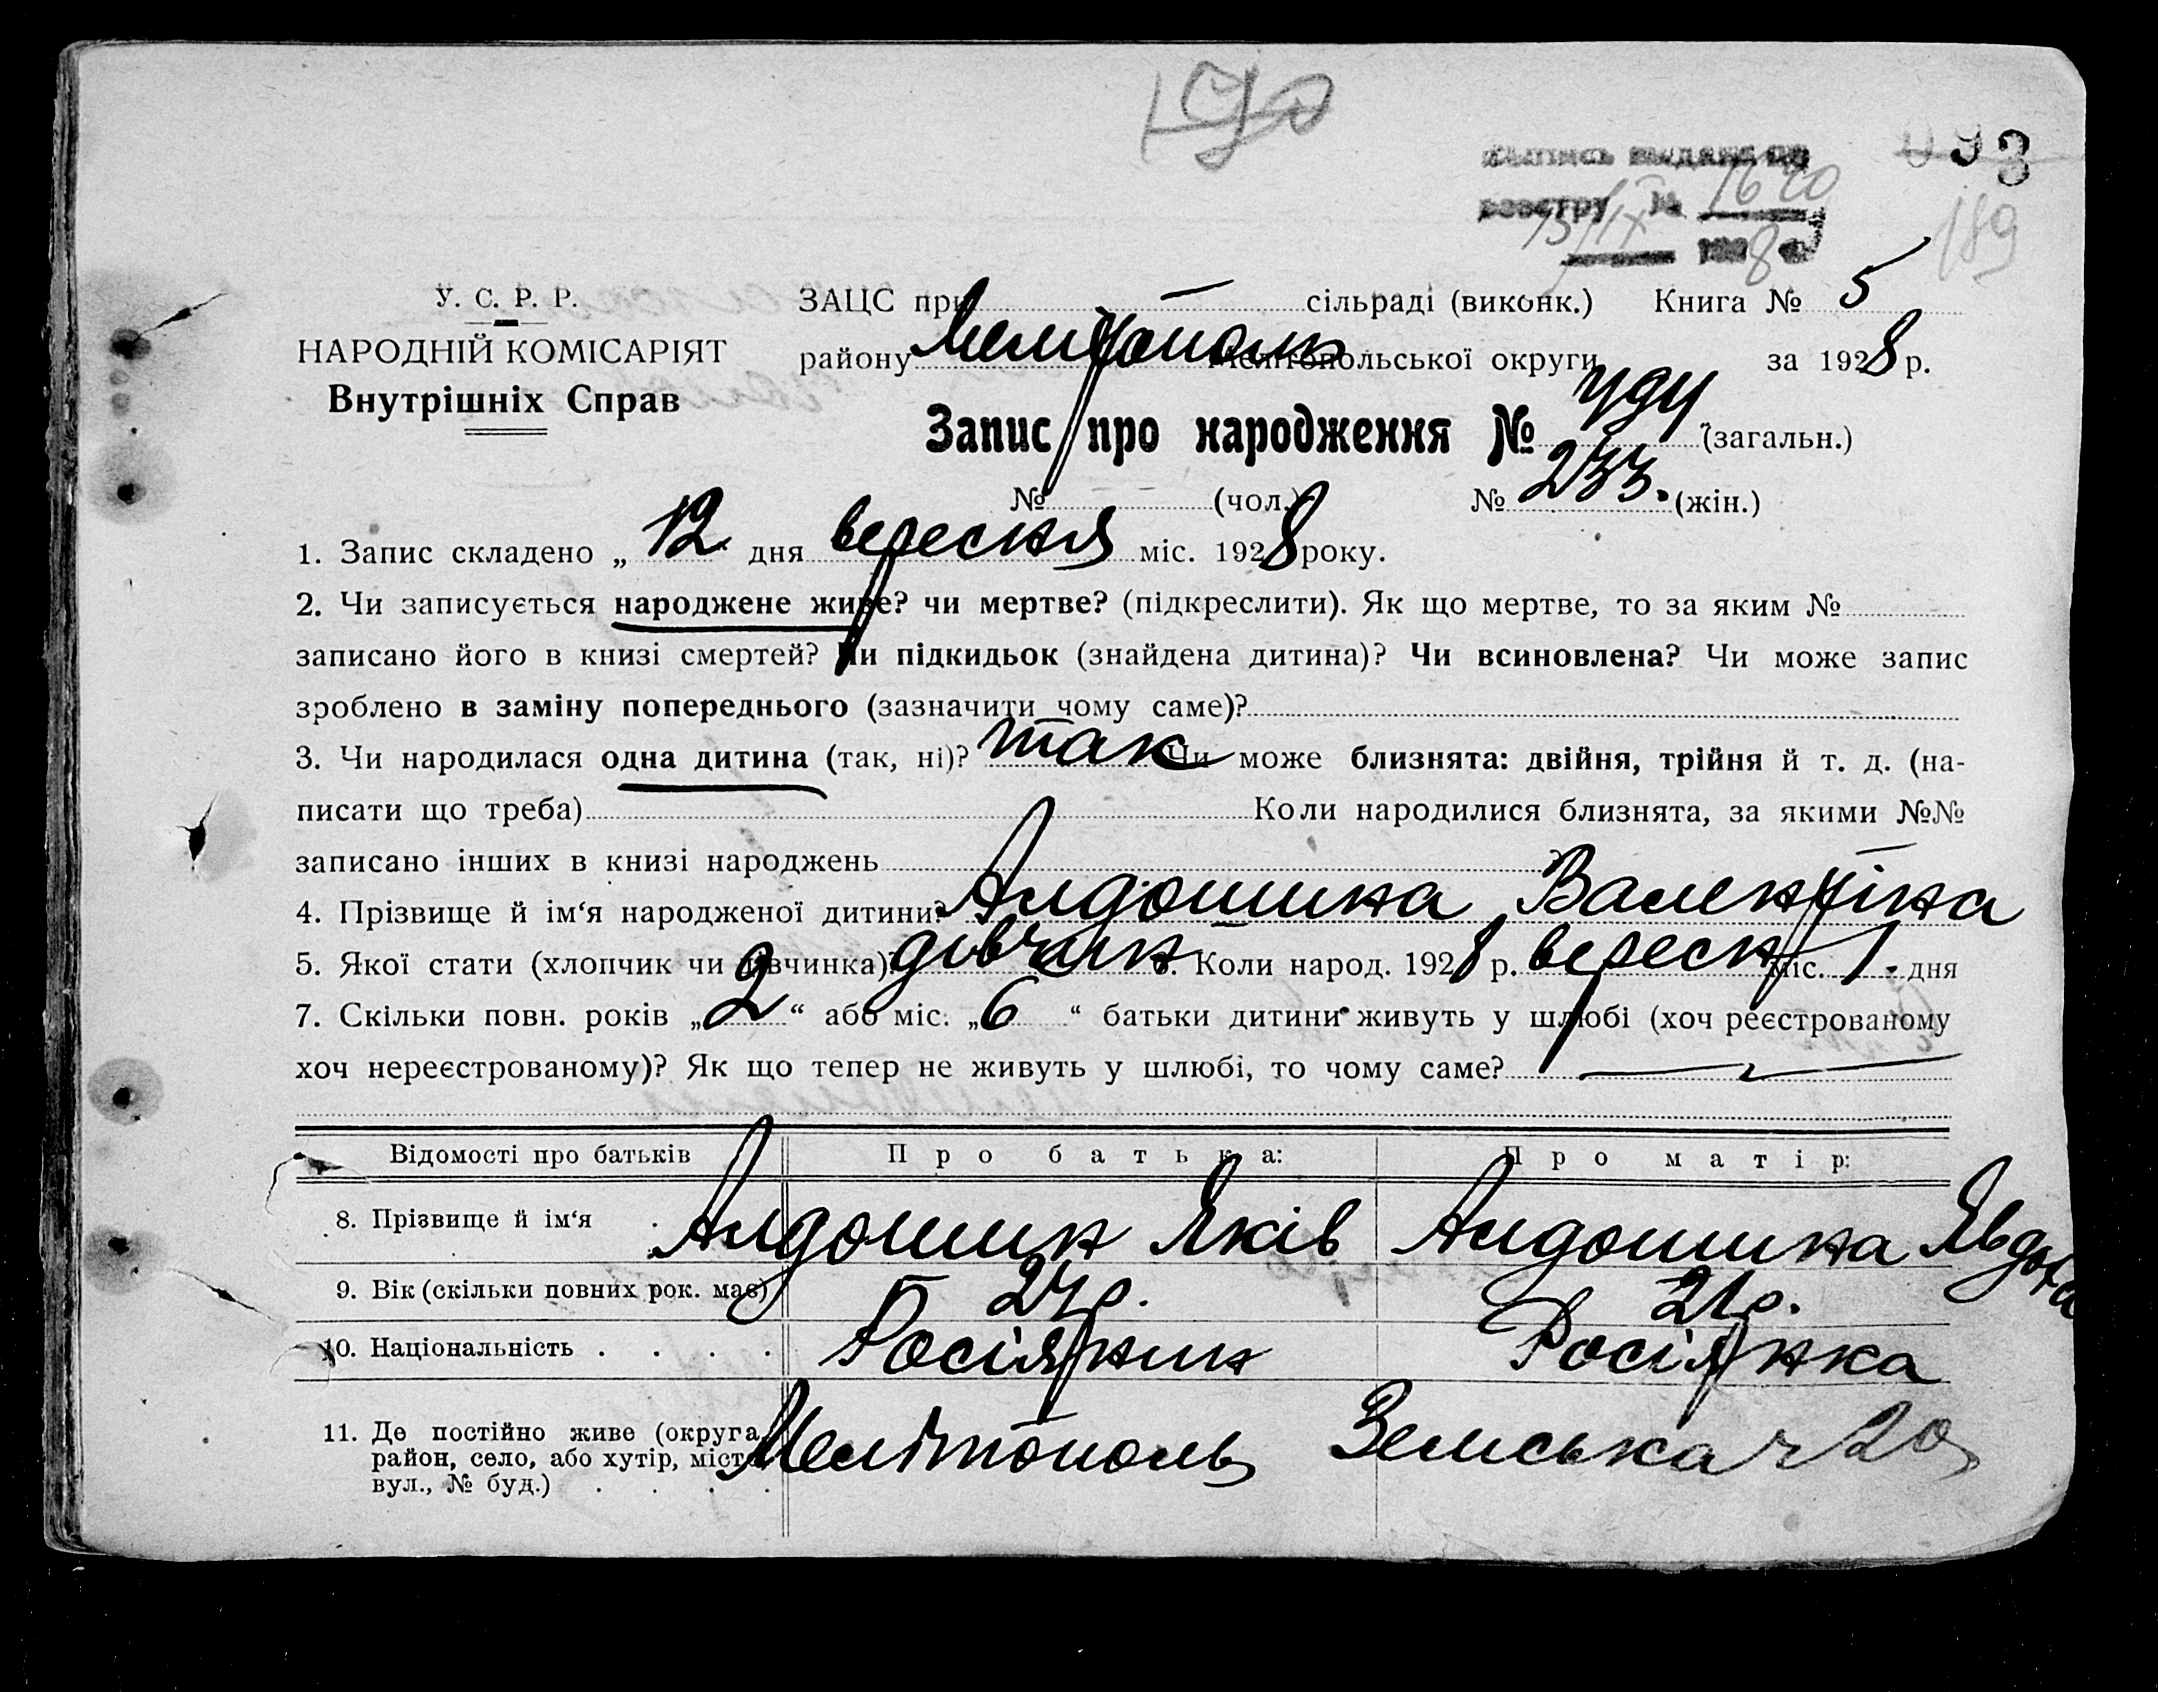 093
189
У. С. Р. Р.
НАРОДНІЙ КОМІСАРІЯТ
Внутрішніх Справ
ЗАЦС при сільраді (виконк.) Книга № 5
району Мелітополь Мелітопольської округи за 1928 р.
Запис про народження № (загальн.)
№ (чол.) № 233. (жін.)
1. Запис складено „ 12 дня вересня міс. 1928 року.
2. Чи записується народжене живе? чи мертве? (підкреслити). Як що мертве, то за яким №
записано його в книзі смертей? Чи підкидьок (знайдена дитина)? Чи всиновлена? Чи може запис
зроблено в заміну попереднього (зазначити чому саме)?
3. Чи народилася одна дитина (так, ні)? так Чи може близнята: двійня, трійня й т. д. (на-
писати що треба) Коли народилися близнята, за якими №№
записано інших в книзі народжень
4. Прізвище й ім‘я народженої дитини? Алдошина Валентіна
5. Якої стати (хлопчик чи дівчинка) дівчина 6. Коли народ. 1928 р. вересн міс. 1. дня
7. Скільки повн. років „ 2 “ або міс. „ 6 “ батьки дитини живуть у шлюбі (хоч реєстрованому
хоч нереєстрованому)? Як що тепер не живуть у шлюбі, то чому саме?
Відомості про батьків Про батька: Про матір:
8. Прізвище й ім‘я . Алдошин Яків Алдошина Явдоха
9. Вік (скільки повних рок. має) 24р. 21р.
10. Національність . . . . Росіянин Росіянка
11. Де постійно живе (округа,
район, село, або хутір, місто
вул., № буд.) . . . . Мелітополь Земська ч 20